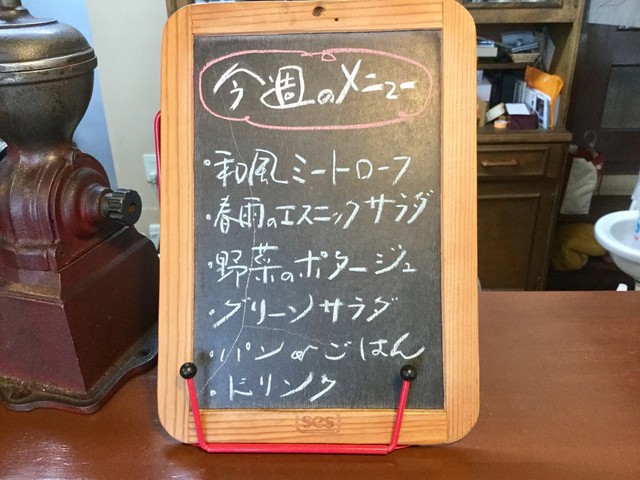 今週のメニュー
・和風ミートローフ
・春雨のエスニックサラダ
・野菜のポタージュ
・グリーンサラダ
・パン or ごはん
・ドリンク
SCS